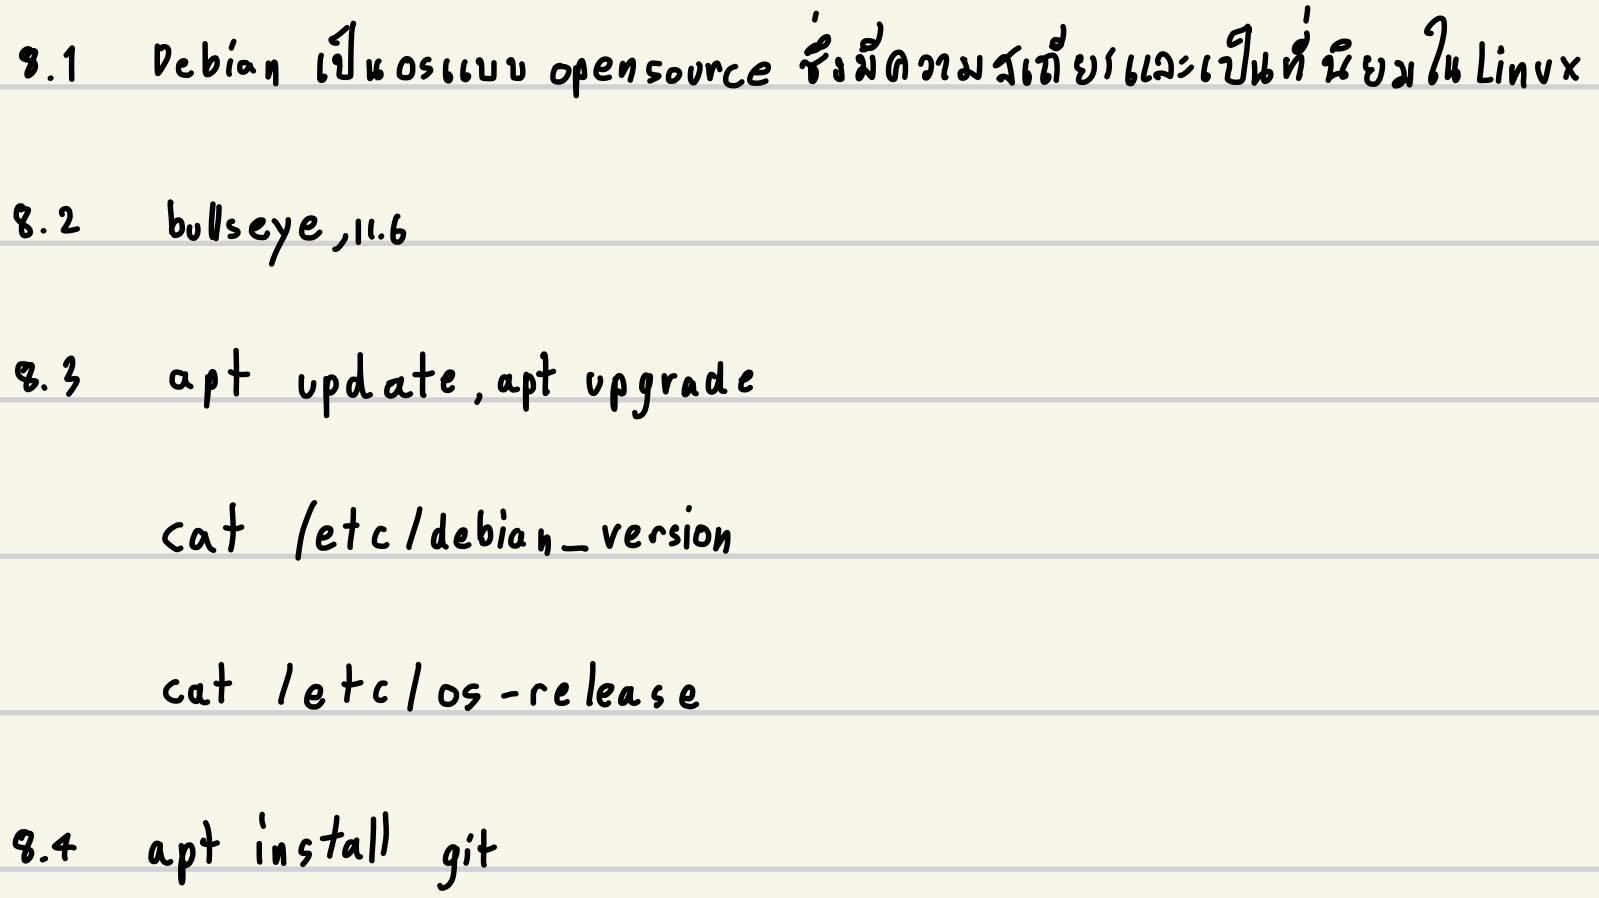 8.1 Debian เป็น os แบบ opensource ซึ่งมีความสเถียรและเป็นที่นิยมใน Linux
8.2 bullseye, 11.6
8.3 apt update, apt upgrade
cat /etc/debian_version
cat /etc/os-release
8.4 apt install git